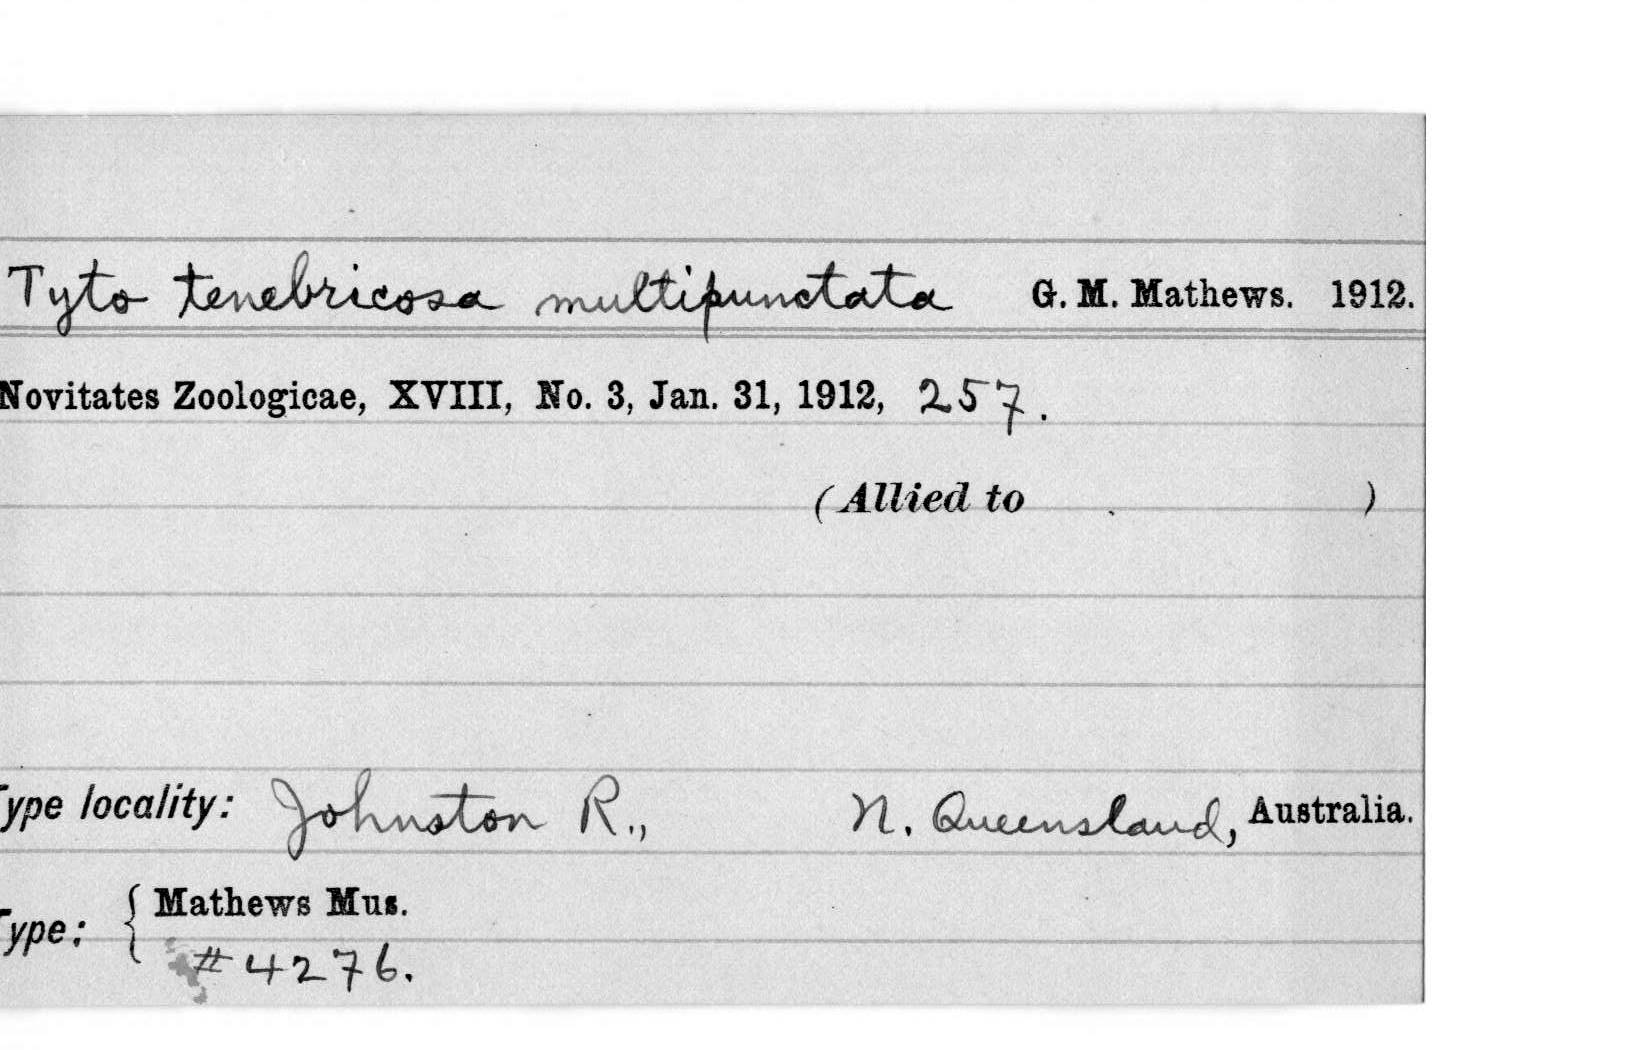 Tyto tenebricosa multipunctata G. M. Mathews. 1912.
Novitates Zoologicae, XVIII, No. 3, Jan. 31, 1912, 257.
(Allied to )
Type locality: Johnston R., N. Queensland, Australia.
Type: { Mathews Mus.
#4276.